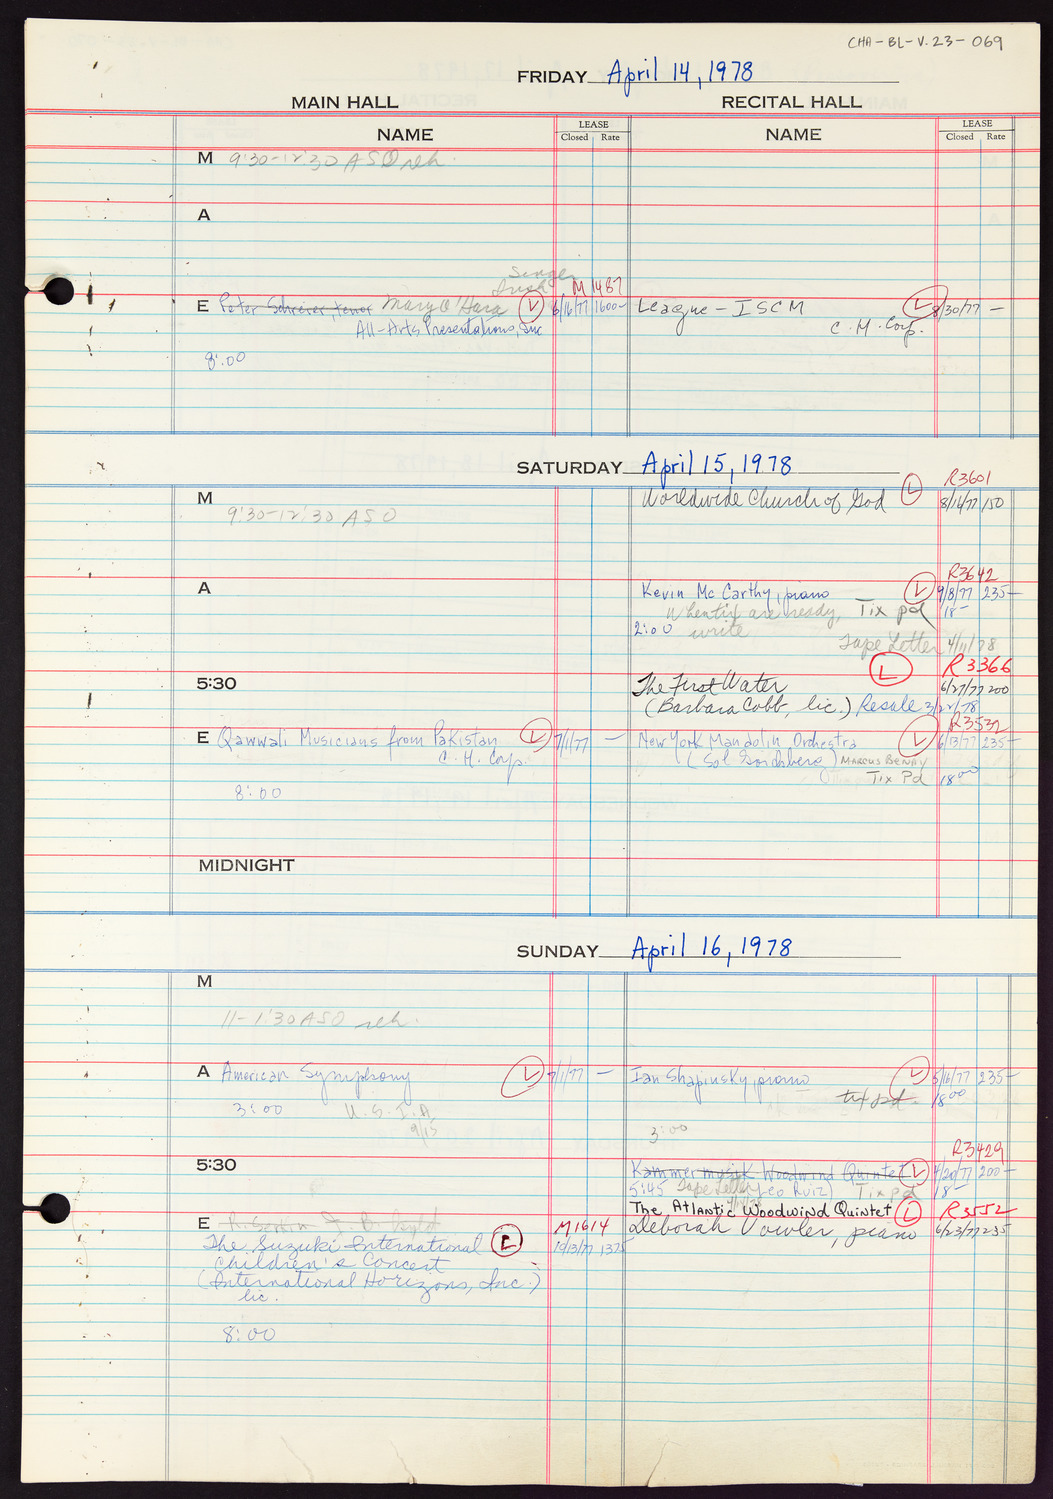 CHA-BL-V.23-069
FRIDAY April 14, 1978
MAIN HALL RECITAL HALL
NAME LEASE Closed Rate NAME LEASE Closed Rate
M 9:30-12:30 ASO reh.
A
Singer
Irish M 1487
E Peter Schreier, tenor Mary O'Hara L 6/16/77 1600- League - ISCM L 8/30/77 -
All-Arts Presentations, Inc C. M. Corp.
8:00
SATURDAY April 15, 1978
R3601
M Worldwide Church of God L 8/14/77 150
9:30-12:30 ASO
R3642
A Kevin McCarthy, piano L 9/8/77 235-
When tix are ready, Tix pd 18-
2:00 write
Tape Letter 4/11/78
L R3366
5:30 The First Water 6/27/77 200
(Barbara Cobb, lic.) Resale 3/22/78
R3532
E Qawwali Musicians from Pakistan L 7/1/77 - New York Mandolin Orchestra L 6/13/77 235-
C. H. Corp. (Sol Goichberg) MARCUS BENAY
Tix Pd 18 00
8:00
MIDNIGHT
SUNDAY April 16, 1978
M
11-1:30 ASO reh.
A American Symphony L 7/1/77 - Ian Shapinsky, piano L 5/16/77 235-
3:00 U.S.I.A. tix pd. 18 00
9/15
3:00
R3429
5:30 Kammermusik Woodwind Quintet L 4/20/77 200-
5:45 Tape Letter (Leo Ruiz) Tix pd 18-
The Atlantic Woodwind Quintet L R3552
E M1614 Deborah Vowler, piano 6/23/77 235
The Suzuki International L 10/13/77 1375
Children's Concert
(International Horizons, Inc.)
lic.
8:00